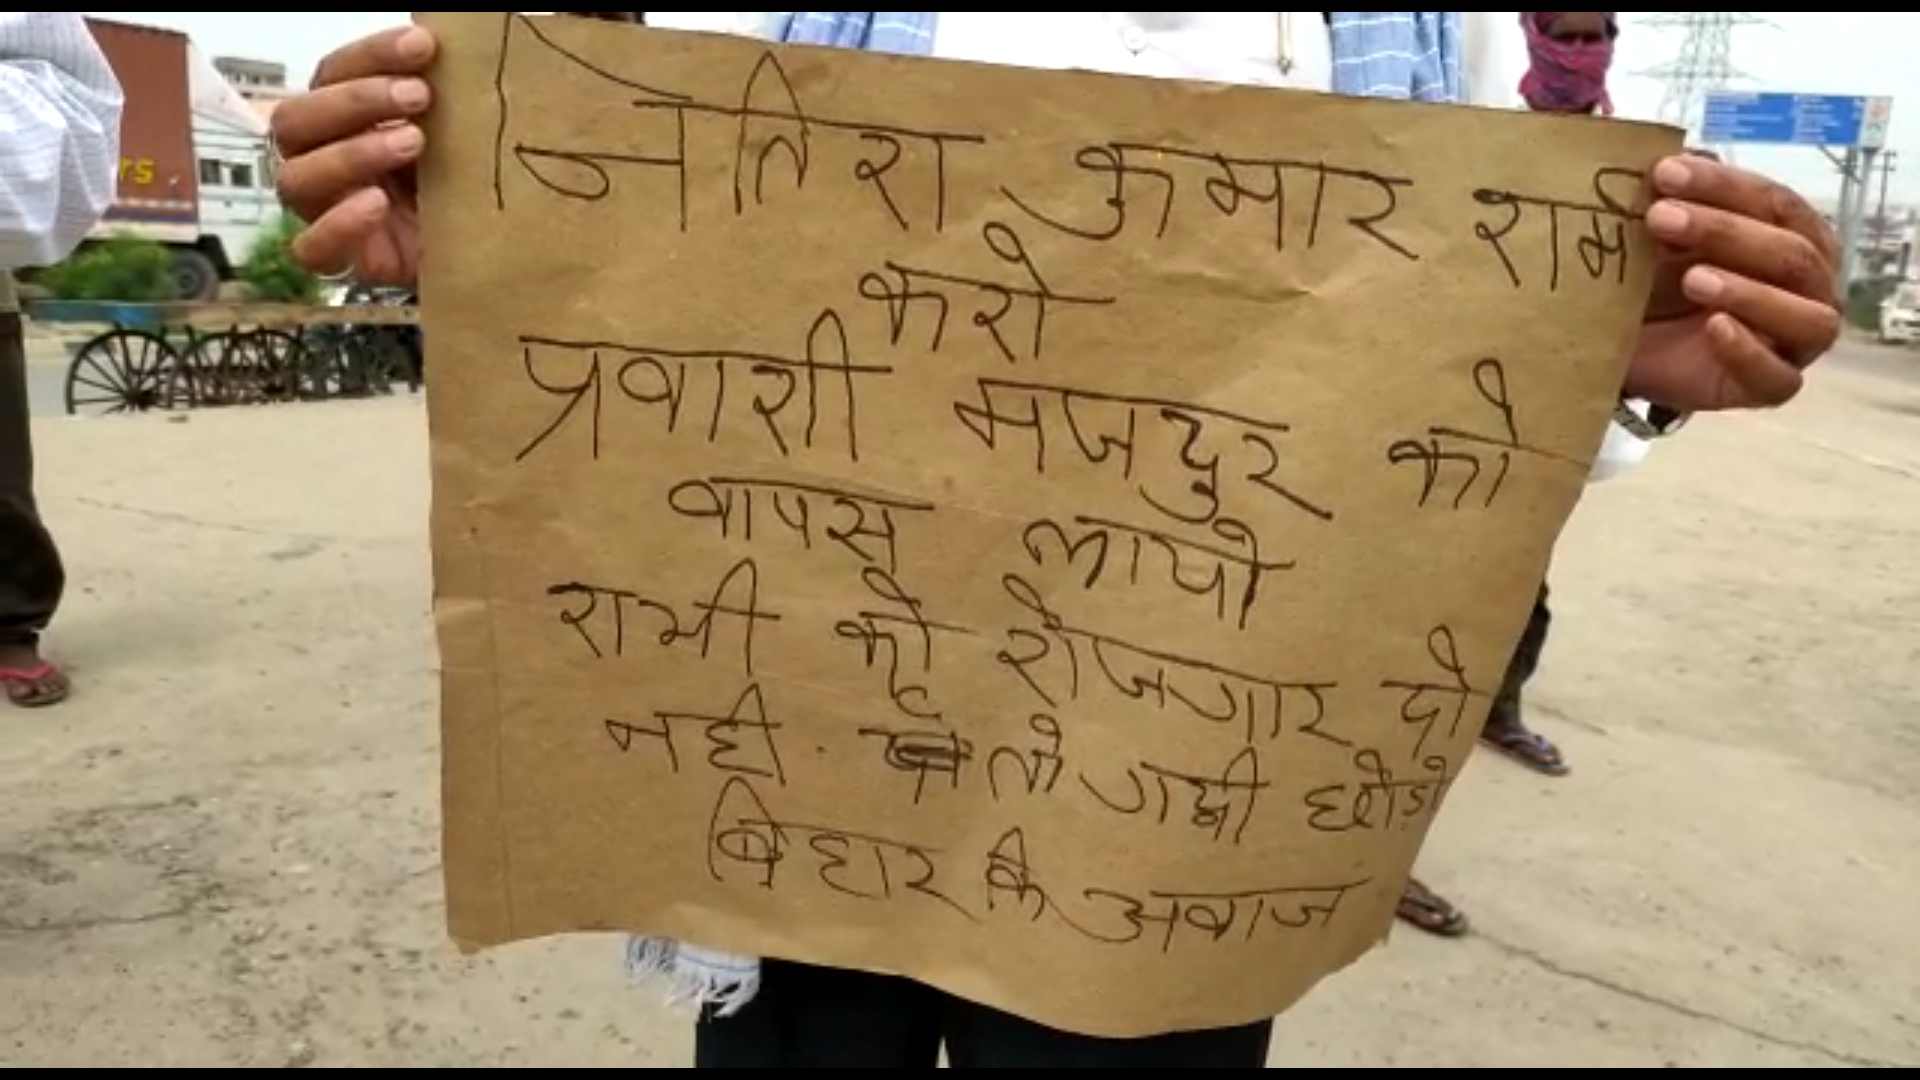 नितिश कुमार शर्म
करो
प्रवाशी मजदुर को
वापस लायो
शभी को रोजगार दो
नही तो गद्दी छोडो
बिहार कि अवाज